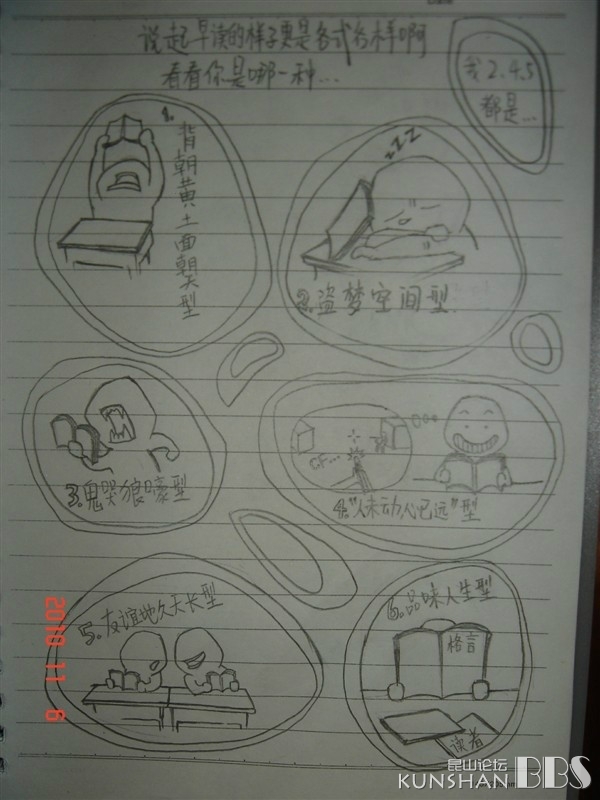 说起早读的样子更是各式各样啊
看看你是哪一种...
我2.4.5
都是...
1.背朝黄土面朝天型
zZZ
2.盗梦空间型
3.鬼哭狼嚎型
CF...
4."人未动心已远"型
5.友谊地久天长型
6.品味人生型
格言
读者
2010 11 6
昆山论坛
KUNSHAN BBS